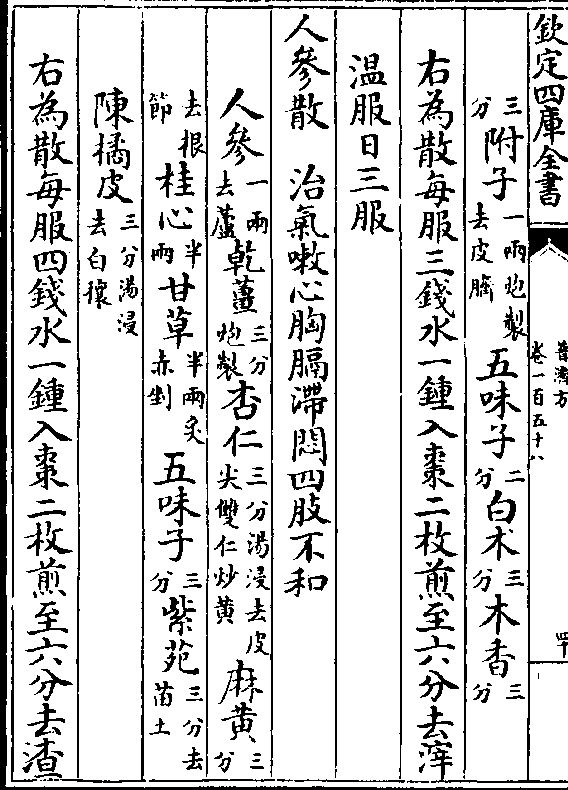 欽定四庫全書
普濟方
卷一百五十八
三分附子一兩炮製去皮臍五味子二分白术三分木香三分
右為散每服三錢水一鍾入棗二枚煎至六分去滓
溫服日三服
人參散 治氣嗽心胸膈滯悶四肢不和
人參一兩去蘆乾薑三分炮製杏仁三分湯浸去皮尖雙仁炒黄麻黄三分
去根節桂心半兩甘草半兩炙赤剉五味子三分紫苑三分去苗土
陳橘皮三分湯浸去白穰
右為散每服四錢水一鍾入棗二枚煎至六分去渣